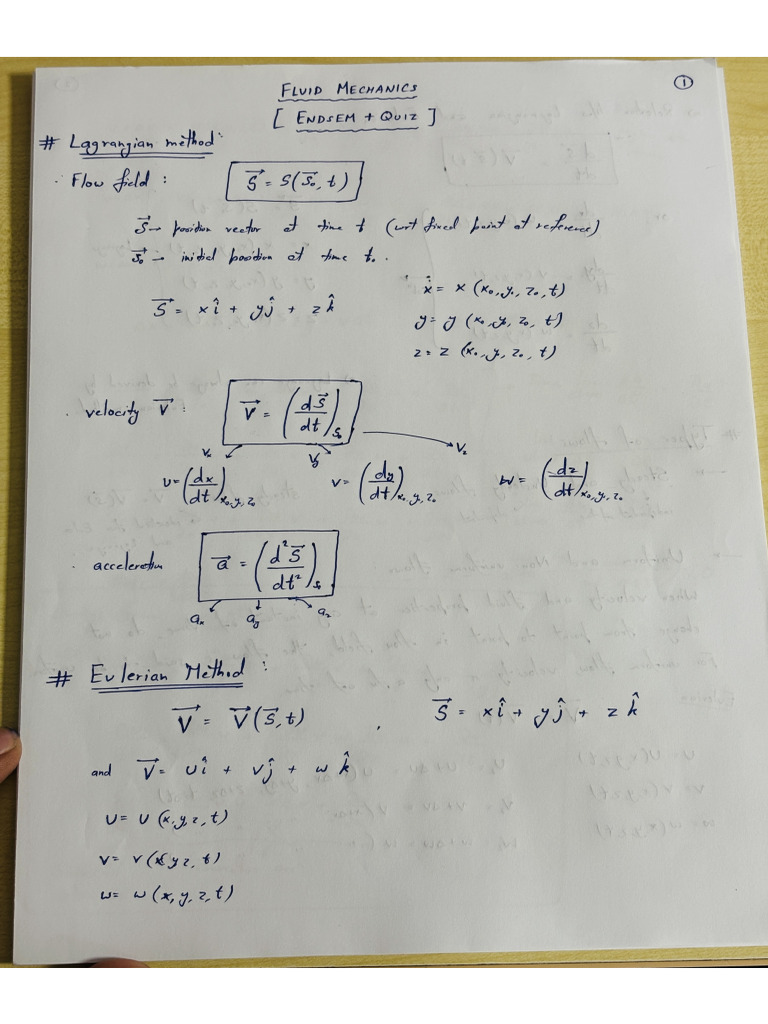 FLUID MECHANICS
①
[ ENDSEM + QUIZ ]
# Lagrangian method:
· Flow field : S⃗ = S(S⃗₀, t)
S⃗ → position vector at time t (wrt fixed point at reference)
S⃗₀ → initial position at time t₀.
S⃗ = xî + yĵ + zk̂
x = x (x₀, y₀, z₀, t)
y = y (x₀, y₀, z₀, t)
z = z (x₀, y₀, z₀, t)
· velocity V⃗ : V⃗ = (dS⃗/dt)ₛ₀
Vₓ Vy V_z
u = (dx/dt)x₀,y₀,z₀ v = (dy/dt)x₀,y₀,z₀ w = (dz/dt)x₀,y₀,z₀
· acceleration a⃗ = (d²S⃗/dt²)ₛ₀
aₓ ay a_z
# Eulerian Method :
V⃗ = V⃗(S⃗, t) , S⃗ = xî + yĵ + zk̂
and V⃗ = uî + vĵ + wk̂
u = u (x, y, z, t)
v = v (x, y z, t)
w = w (x, y, z, t)